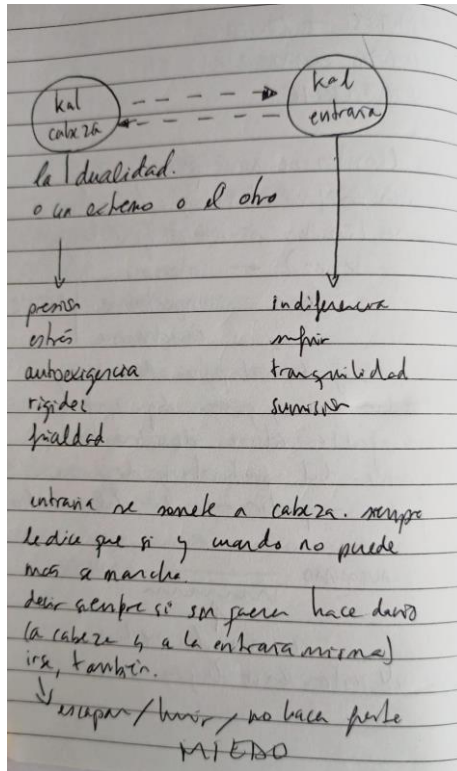 kal
cabeza
kal
entraña
la dualidad.
o un extremo o el otro
presión
estrés
autoexigencia
rigidez
frialdad
indiferencia
sufrir
tranquilidad
sumisión
entraña se somete a cabeza. siempre
le dice que si y cuando no puede
mas se marcha.
decir siempre si sin querer hace daño
(a cabeza y a la entraña misma)
irse, también.
escapar/huir/no hacer frente
MIEDO